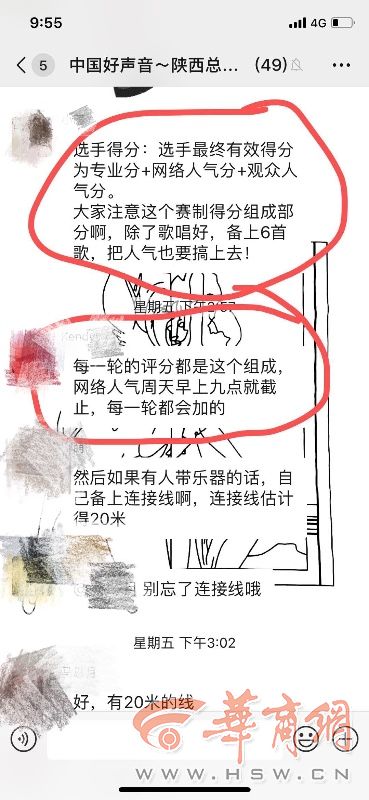 9:55
4G
5
中国好声音～陕西总... (49)
选手得分：选手最终有效得分
为专业分+网络人气分+观众人
气分。
大家注意这个赛制得分组成部
分啊，除了歌唱好，备上6首
歌，把人气也要搞上去！
星期五 下午2:57
每一轮的评分都是这个组成，
网络人气周天早上九点就截
止，每一轮都会加的
然后如果有人带乐器的话，自
己备上连接线啊，连接线估计
得20米
别忘了连接线哦
星期五 下午3:02
好，有20米的线
华商网
WWW.HSW.CN